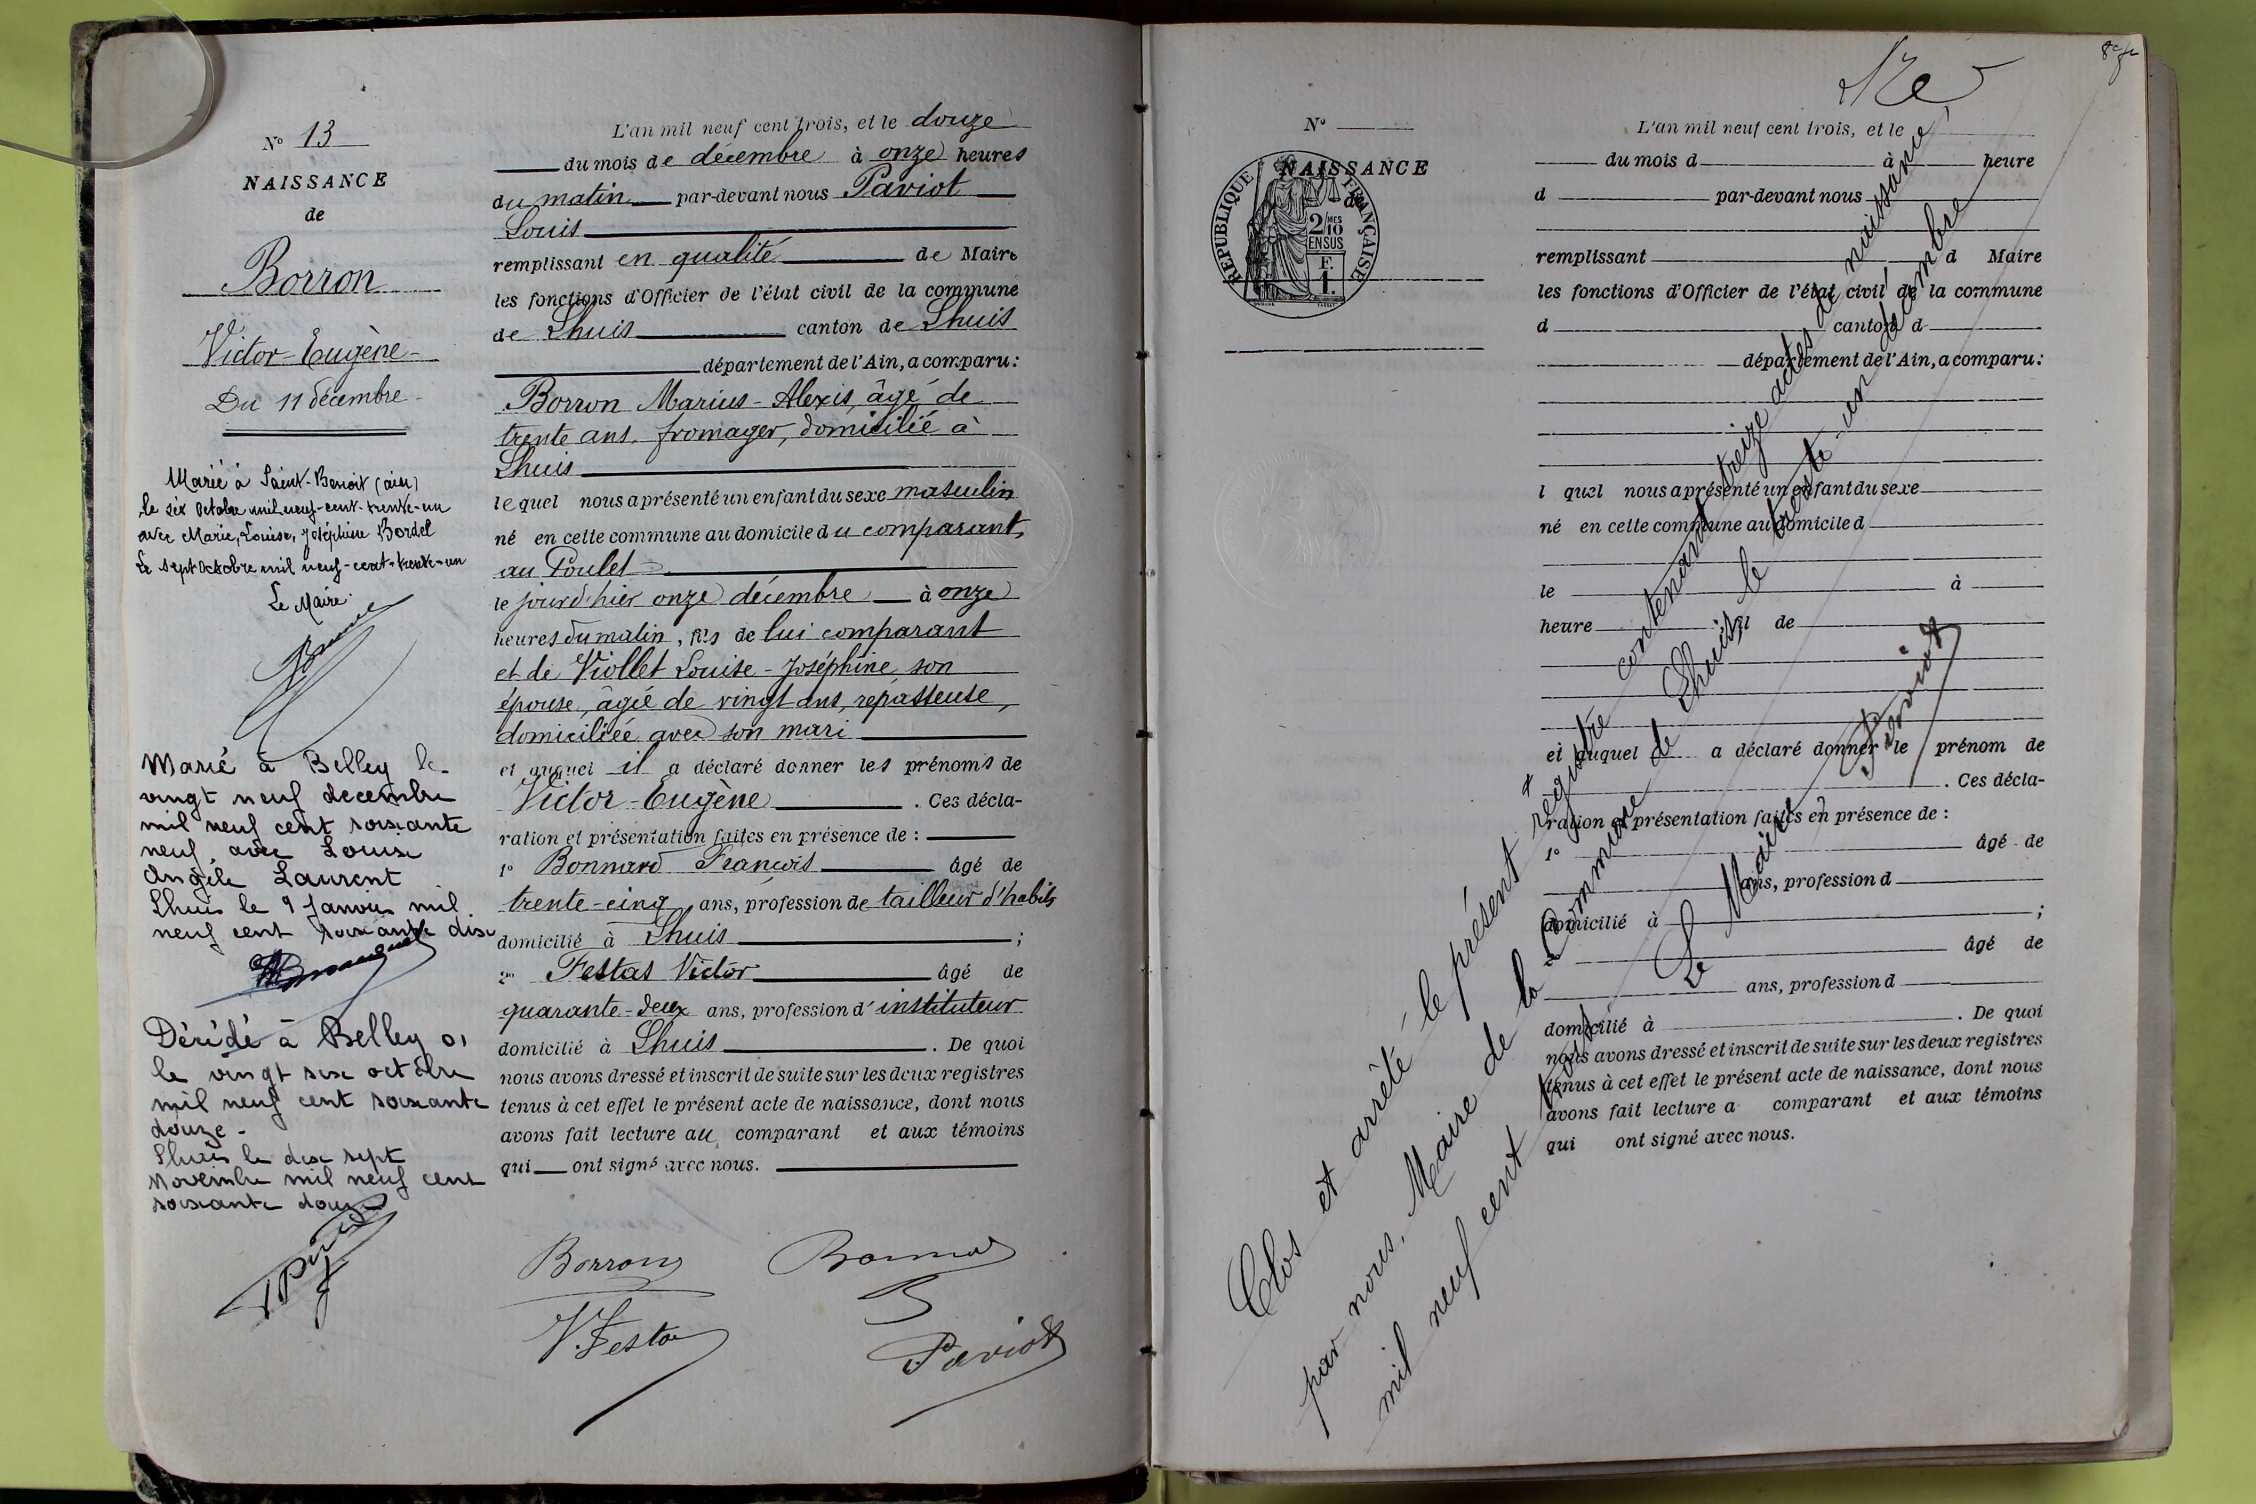 N° 13
NAISSANCE
de
Borron
Victor-Eugène
Du 11 décembre
Marié à Saint-Benoit (ain)
le six Octobre mil neuf-cent-trente-un
avec Marie, Louise, Joséphine Bordel
Le sept Octobre mil neuf-cent-trente-un
Le Maire:
Marié à Belley le
vingt neuf decembre
mil neuf cent soixante
neuf, avec Louise
Angèle Laurent
Lhuis le 9 Janvier mil
neuf cent soixante dix
Dérédé à Belley 01
le vingt six octobre
mil neuf cent soixante
douze -
Lhuis le dix sept
Novembre mil neuf cent
soixante douze
L'an mil neuf cent trois, et le douze
du mois de décembre à onze heures
du matin par-devant nous Paviot
Louis
remplissant en qualité de Maire
les fonctions d'Officier de l'état civil de la commune
de Lhuis canton de Lhuis
département de l'Ain, a comparu:
Borron Marius-Alexis, âgé de
trente ans, fromager, domicilié à
Lhuis
lequel nous a présenté un enfant du sexe masculin
né en cette commune au domicile du comparant,
au Poulet
le jourd'hier onze décembre à onze
heures du matin, fils de lui comparant
et de Viollet Louise-Joséphine, son
épouse, âgée de vingt ans, repasseuse,
domiciliée avec son mari
et auquel il a déclaré donner les prénoms de
Victor-Eugène . Ces décla-
ration et présentation faites en présence de :
1° Bonnard François âgé de
trente-cinq ans, profession de tailleur d'habits
domicilié à Lhuis ;
2° Festas Victor âgé de
quarante-deux ans, profession d'instituteur
domicilié à Lhuis . De quoi
nous avons dressé et inscrit de suite sur les deux registres
tenus à cet effet le présent acte de naissance, dont nous
avons fait lecture au comparant et aux témoins
qui ont signé avec nous.
Borron
V. Festas
Paviot
N°
NAISSANCE
de
REPUBLIQUE FRANÇAISE
2/10
MES
EN SUS
F.
1.
L'an mil neuf cent trois, et le
du mois d à heure
d par-devant nous
remplissant d Maire
les fonctions d'Officier de l'état civil de la commune
d canton d
département de l'Ain, a comparu:
l quel nous a présenté un enfant du sexe
né en cette commune au domicile d
le à
heure fil de
et auquel a déclaré donner le prénom de
. Ces décla-
ration et présentation faites en présence de :
1° âgé de
ans, profession d
domicilié à ;
2° âgé de
ans, profession d
domicilié à . De quoi
nous avons dressé et inscrit de suite sur les deux registres
tenus à cet effet le présent acte de naissance, dont nous
avons fait lecture a comparant et aux témoins
qui ont signé avec nous.
Clos et arrêté le présent registre contenant treize actes de naissance
par nous, Maire de la Commune de Lhuis, le trente-un décembre
mil neuf cent trois.
Le Maire
Paviot